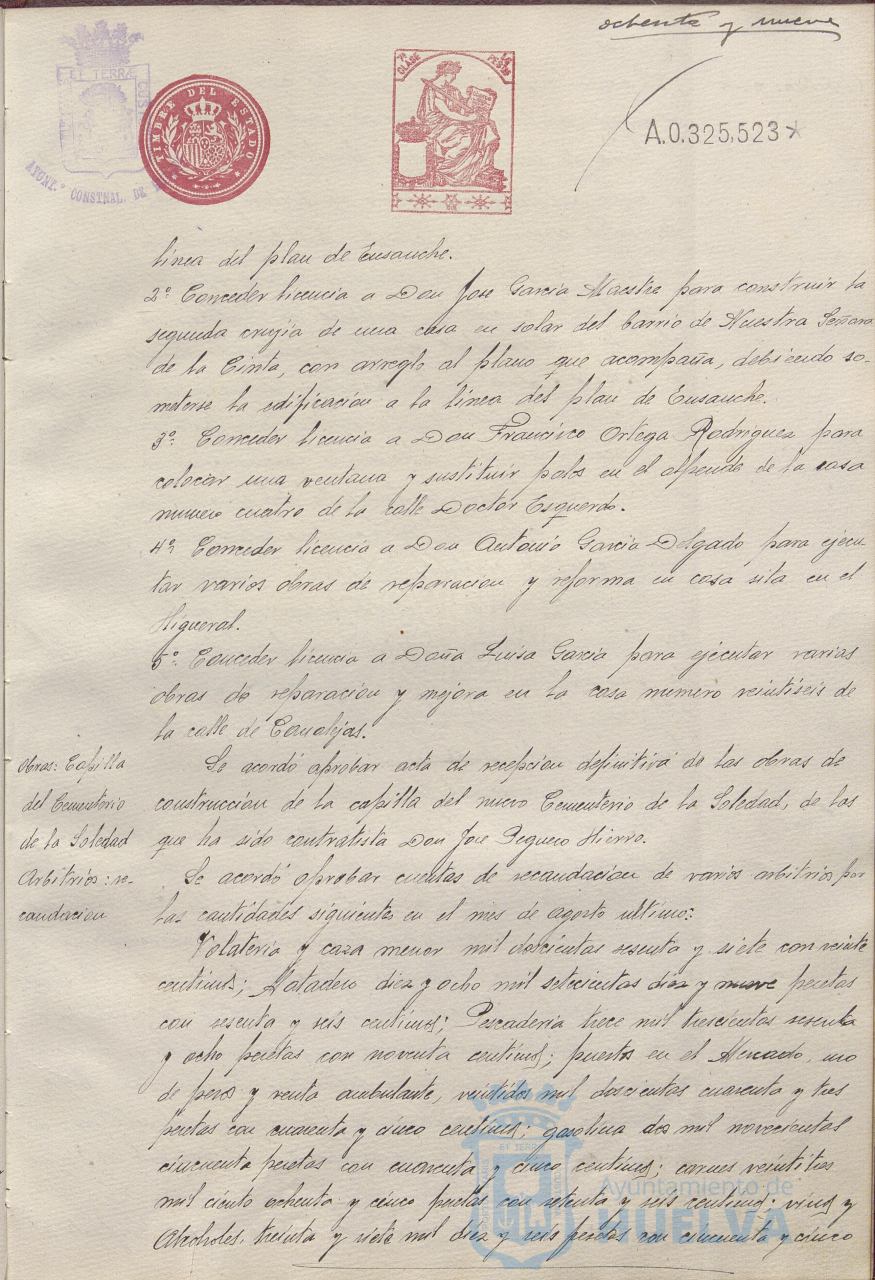 ochenta y nueve
ET TERRÆ
CUS
AYUNT.º CONSTNAL. DE
TIMBRE DEL ESTADO
7ª CLASE
PESETAS
A.0.325,523
línea del plan de Ensanche.
2º Conceder licencia a Don Jose Garcia Maestre para construir la
segunda crujía de una casa en solar del barrio de Nuestra Señora
de la Cinta, con arreglo al plano que acompaña, debiendo so-
meterse la edificacion a la línea del plan de Ensanche.
3º Conceder licencia a Don Francisco Ortega Rodriguez para
colocar una ventana y sustituir palos en el alpende de la casa
número cuatro de la calle Doctor Esquerdo.
4º Conceder licencia a Don Antonio Garcia Delgado para ejecu-
tar varios obras de reparacion y reforma en casa sita en el
Higueral.
5º Conceder licencia a Doña Luisa Garcia para ejecutar varias
obras de reparacion y mejora en la casa número veintiseis de
la calle de Canalejas.
Obras: Capilla
del Cementerio
de la Soledad
Se acordó aprobar acta de recepcion definitiva de las obras de
construccion de la capilla del nuevo Cementerio de la Soledad, de las
que ha sido contratista Don Jose Peguero Hierro.
Arbitrios: re-
caudacion
Se acordó aprobar cuentas de recaudacion de varios arbitrios por
las cantidades siguientes en el mes de agosto ultimo:
Volateria y caza menor mil doscientas sesenta y siete con veinte
centimos; Matadero diez y ocho mil setecientas diez y nueve pesetas
con sesenta y seis centimos; Pescaderia trece mil trescientas sesenta
y ocho pesetas con noventa centimos; puestos en el Mercado, uno
de pesos y venta ambulante, veintidos mil doscientas cuarenta y tres
pesetas con cuarenta y cinco centimos; gasolina dos mil novecientas
cincuenta pesetas con cuarenta y cinco centimos; carnes veintitres
mil ciento ochenta y cinco pesetas con setenta y seis centimos; vinos y
Alcoholes, treinta y siete mil diez y seis pesetas con cincuenta y cinco
ET TERRÆ
Ayuntamiento de
HUELVA